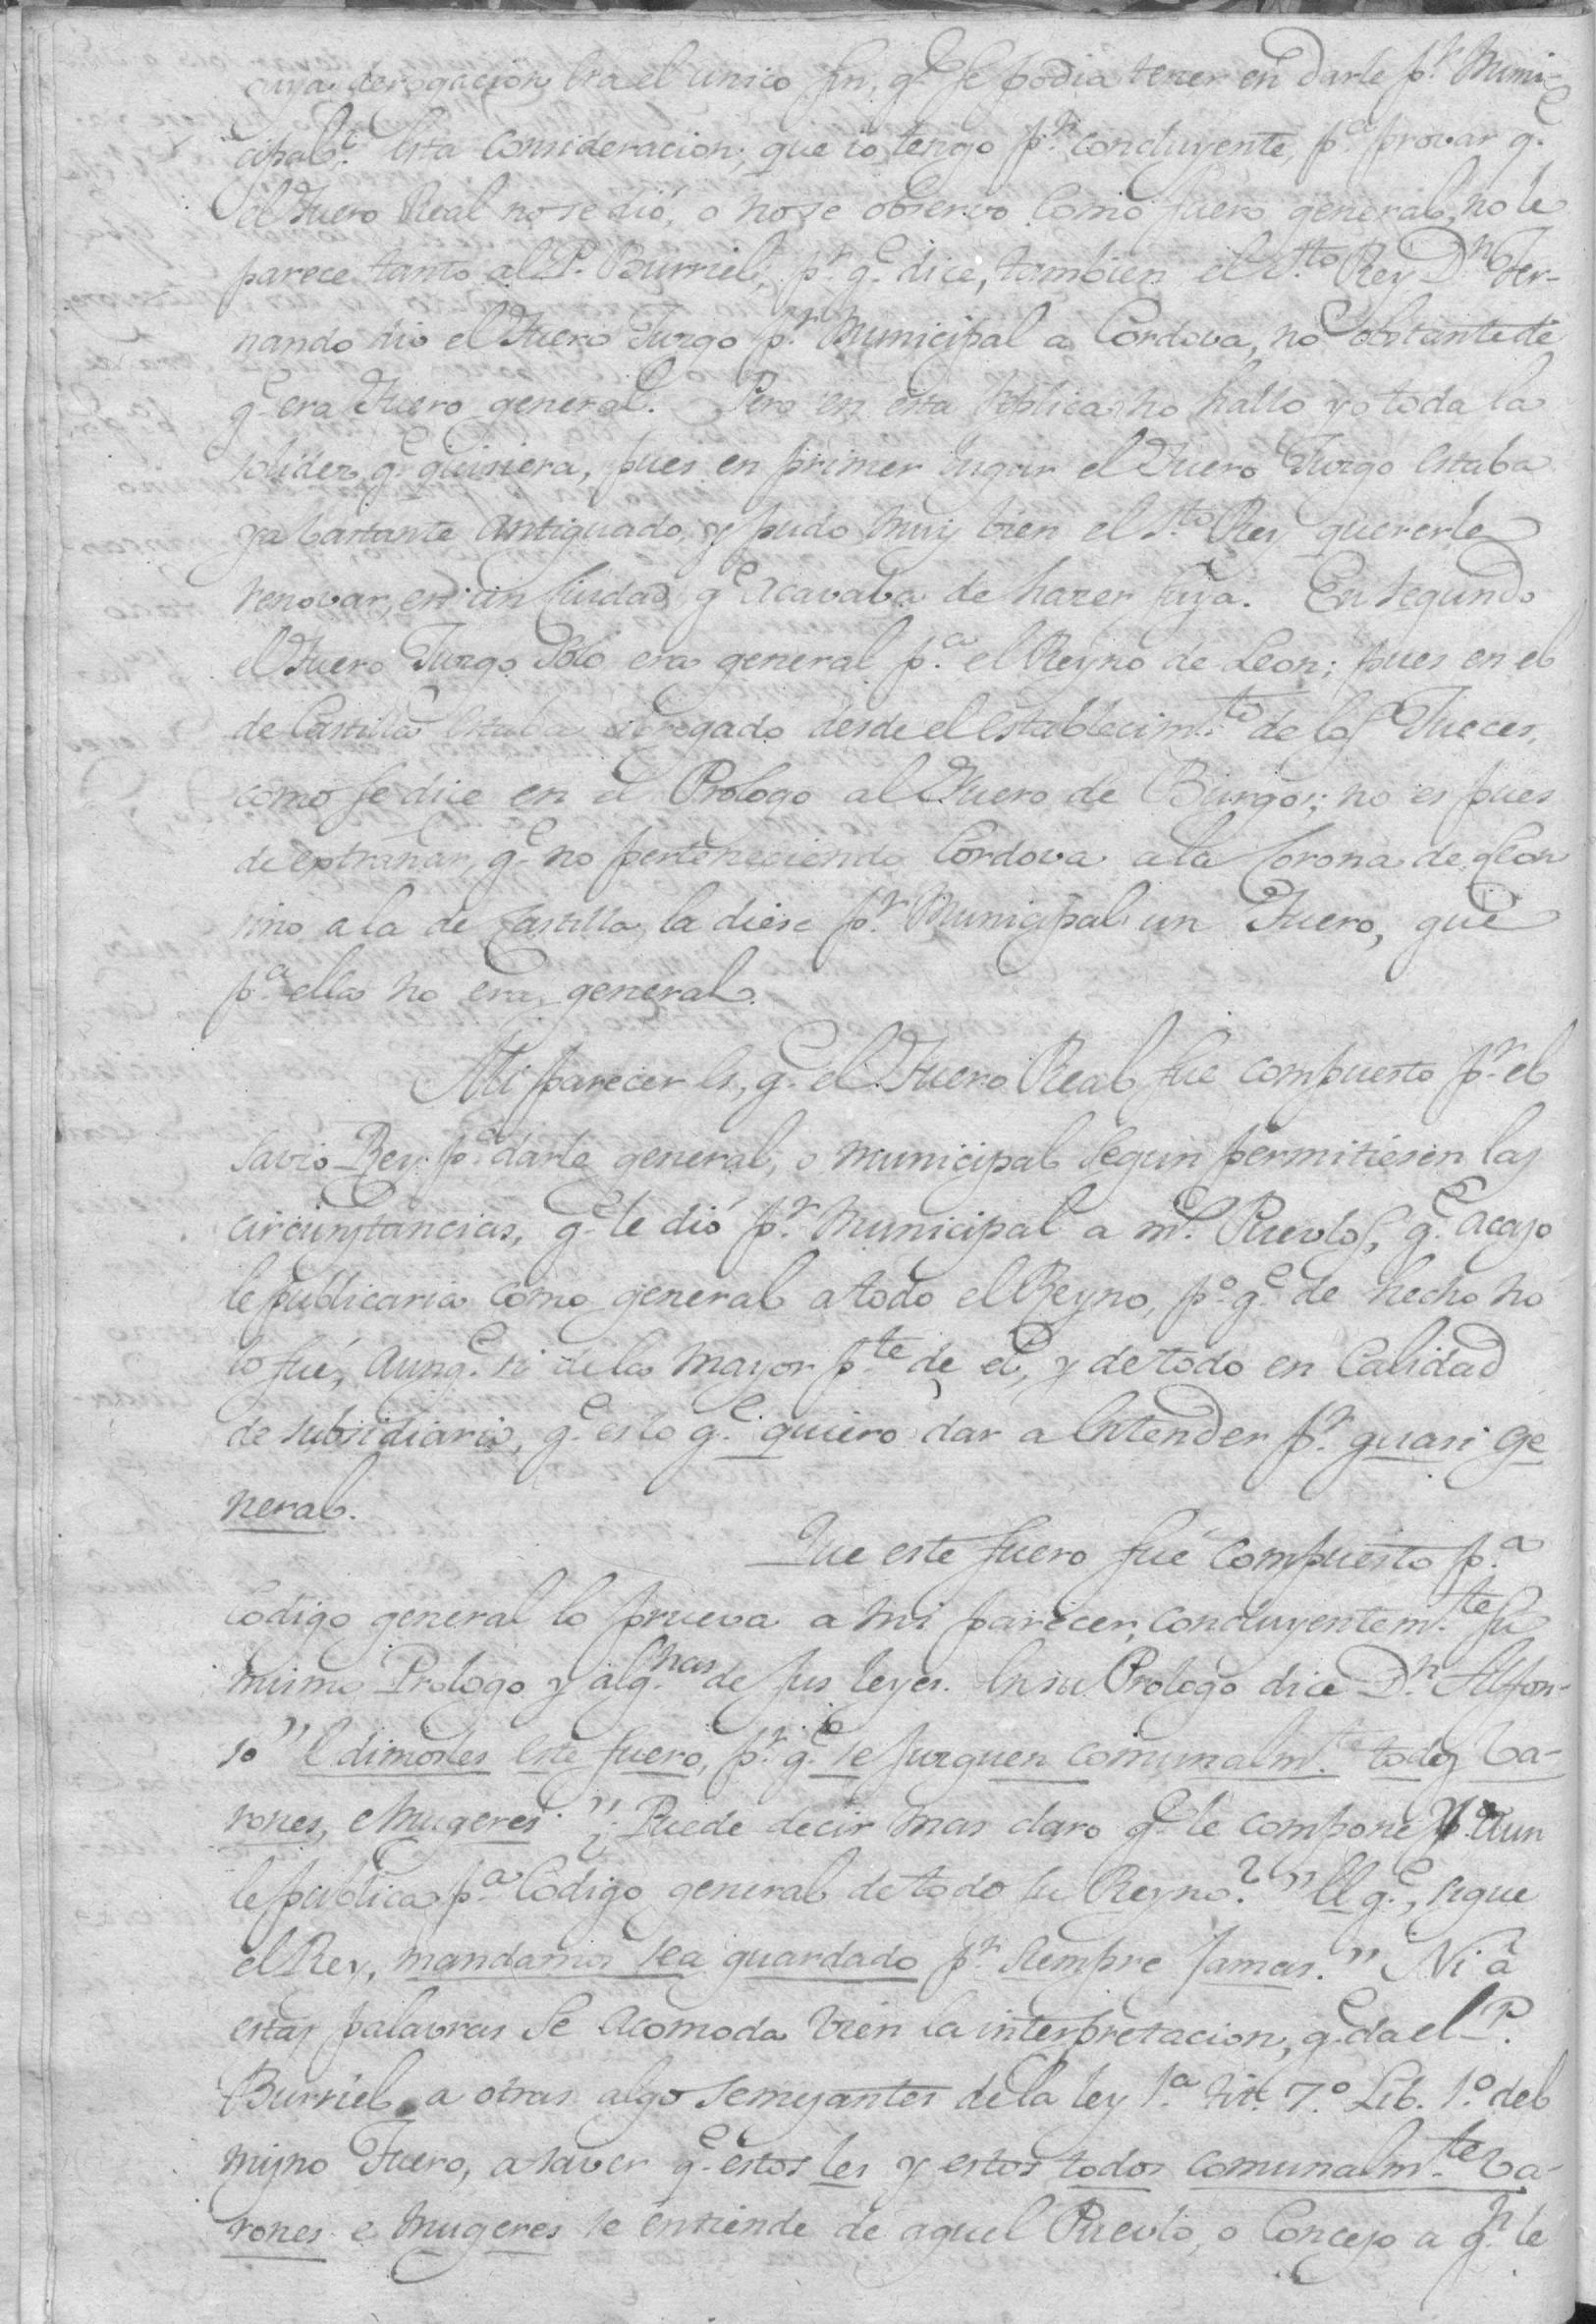 cuya derogacion era el unico fin, q.e se podia tener en darle p.r Muni-
cipal. Esta consideracion, que io tengo p.r concluyente, p.a provar q.e
el Fuero Real no se dió, o no se observo como fuero general, no le
parece tanto al P. Burriel, p.r q.e dice, tambien el S.to Rey D.n Fer-
nando dio el Fuero Juzgo p.r Municipal a Cordova, no obstante de
q.e era Fuero general. Pero en esta replica no hallo yo toda la
solidez q.e quisiera, pues en primer lugar el Fuero Juzgo estaba
ya bastante antiguado, y pudo muy bien el S.to Rey quererle
renovar, en un Ciudad q.e acavaba de hazer suya. En segundo
el Fuero Juzgo solo era general p.a el Reyno de Leon; pues en el
de Castilla estaba derogado desde el establecim.to de los Jueces,
como se dice en el Prologo al Fuero de Burgos; no es pues
de extrañar, q.e no perteneciendo Cordova a la Corona de Leon
sino a la de Castilla, la diese p.r Municipal un Fuero, que
p.a ella no era general.
Mi parecer es, q.e el Fuero Real fue compuesto p.r el
Savio Rey p.a darle general, o municipal segun permitiesen las
circunstancias, q.e le dió p.r Municipal a m.s Pueblos, q.e acaso
le publicaria como general a todo el Reyno, p.o q.e de hecho no
lo fué, aunq.e si de la mayor p.te de el, y de todo en calidad
de subsidiario, q.e es lo q.e quiero dar a entender p.r quasi ge
neral.
Que este fuero fué compuesto p.a
Codigo general lo prueva a mi parecer, concluyentem.te su
mismo Prologo y alg.nas de sus leyes. En su Prologo dice D.n Alfon-
so " E dimosles este fuero, p.r q.e se juzguen comunalm.te todos va-
rones, e mugeres." ¿Puede decir mas claro q.e le compone y aun
le publica p.a Codigo general de todo su Reyno? " El q.e, sigue
el Rey, mandamos sea guardado p.r siempre jamas." Ni a
estas palavras se acomoda bien la interpretacion, q.e da el P.
Burriel a otras algo semejantes de la ley 1.a tit. 7.o Lib. 1.o del
mismo Fuero, a saver q.e estos les y estos todos comunalm.te va-
rones e mugeres se entiende de aquel Pueblo, o Concejo a q.n le